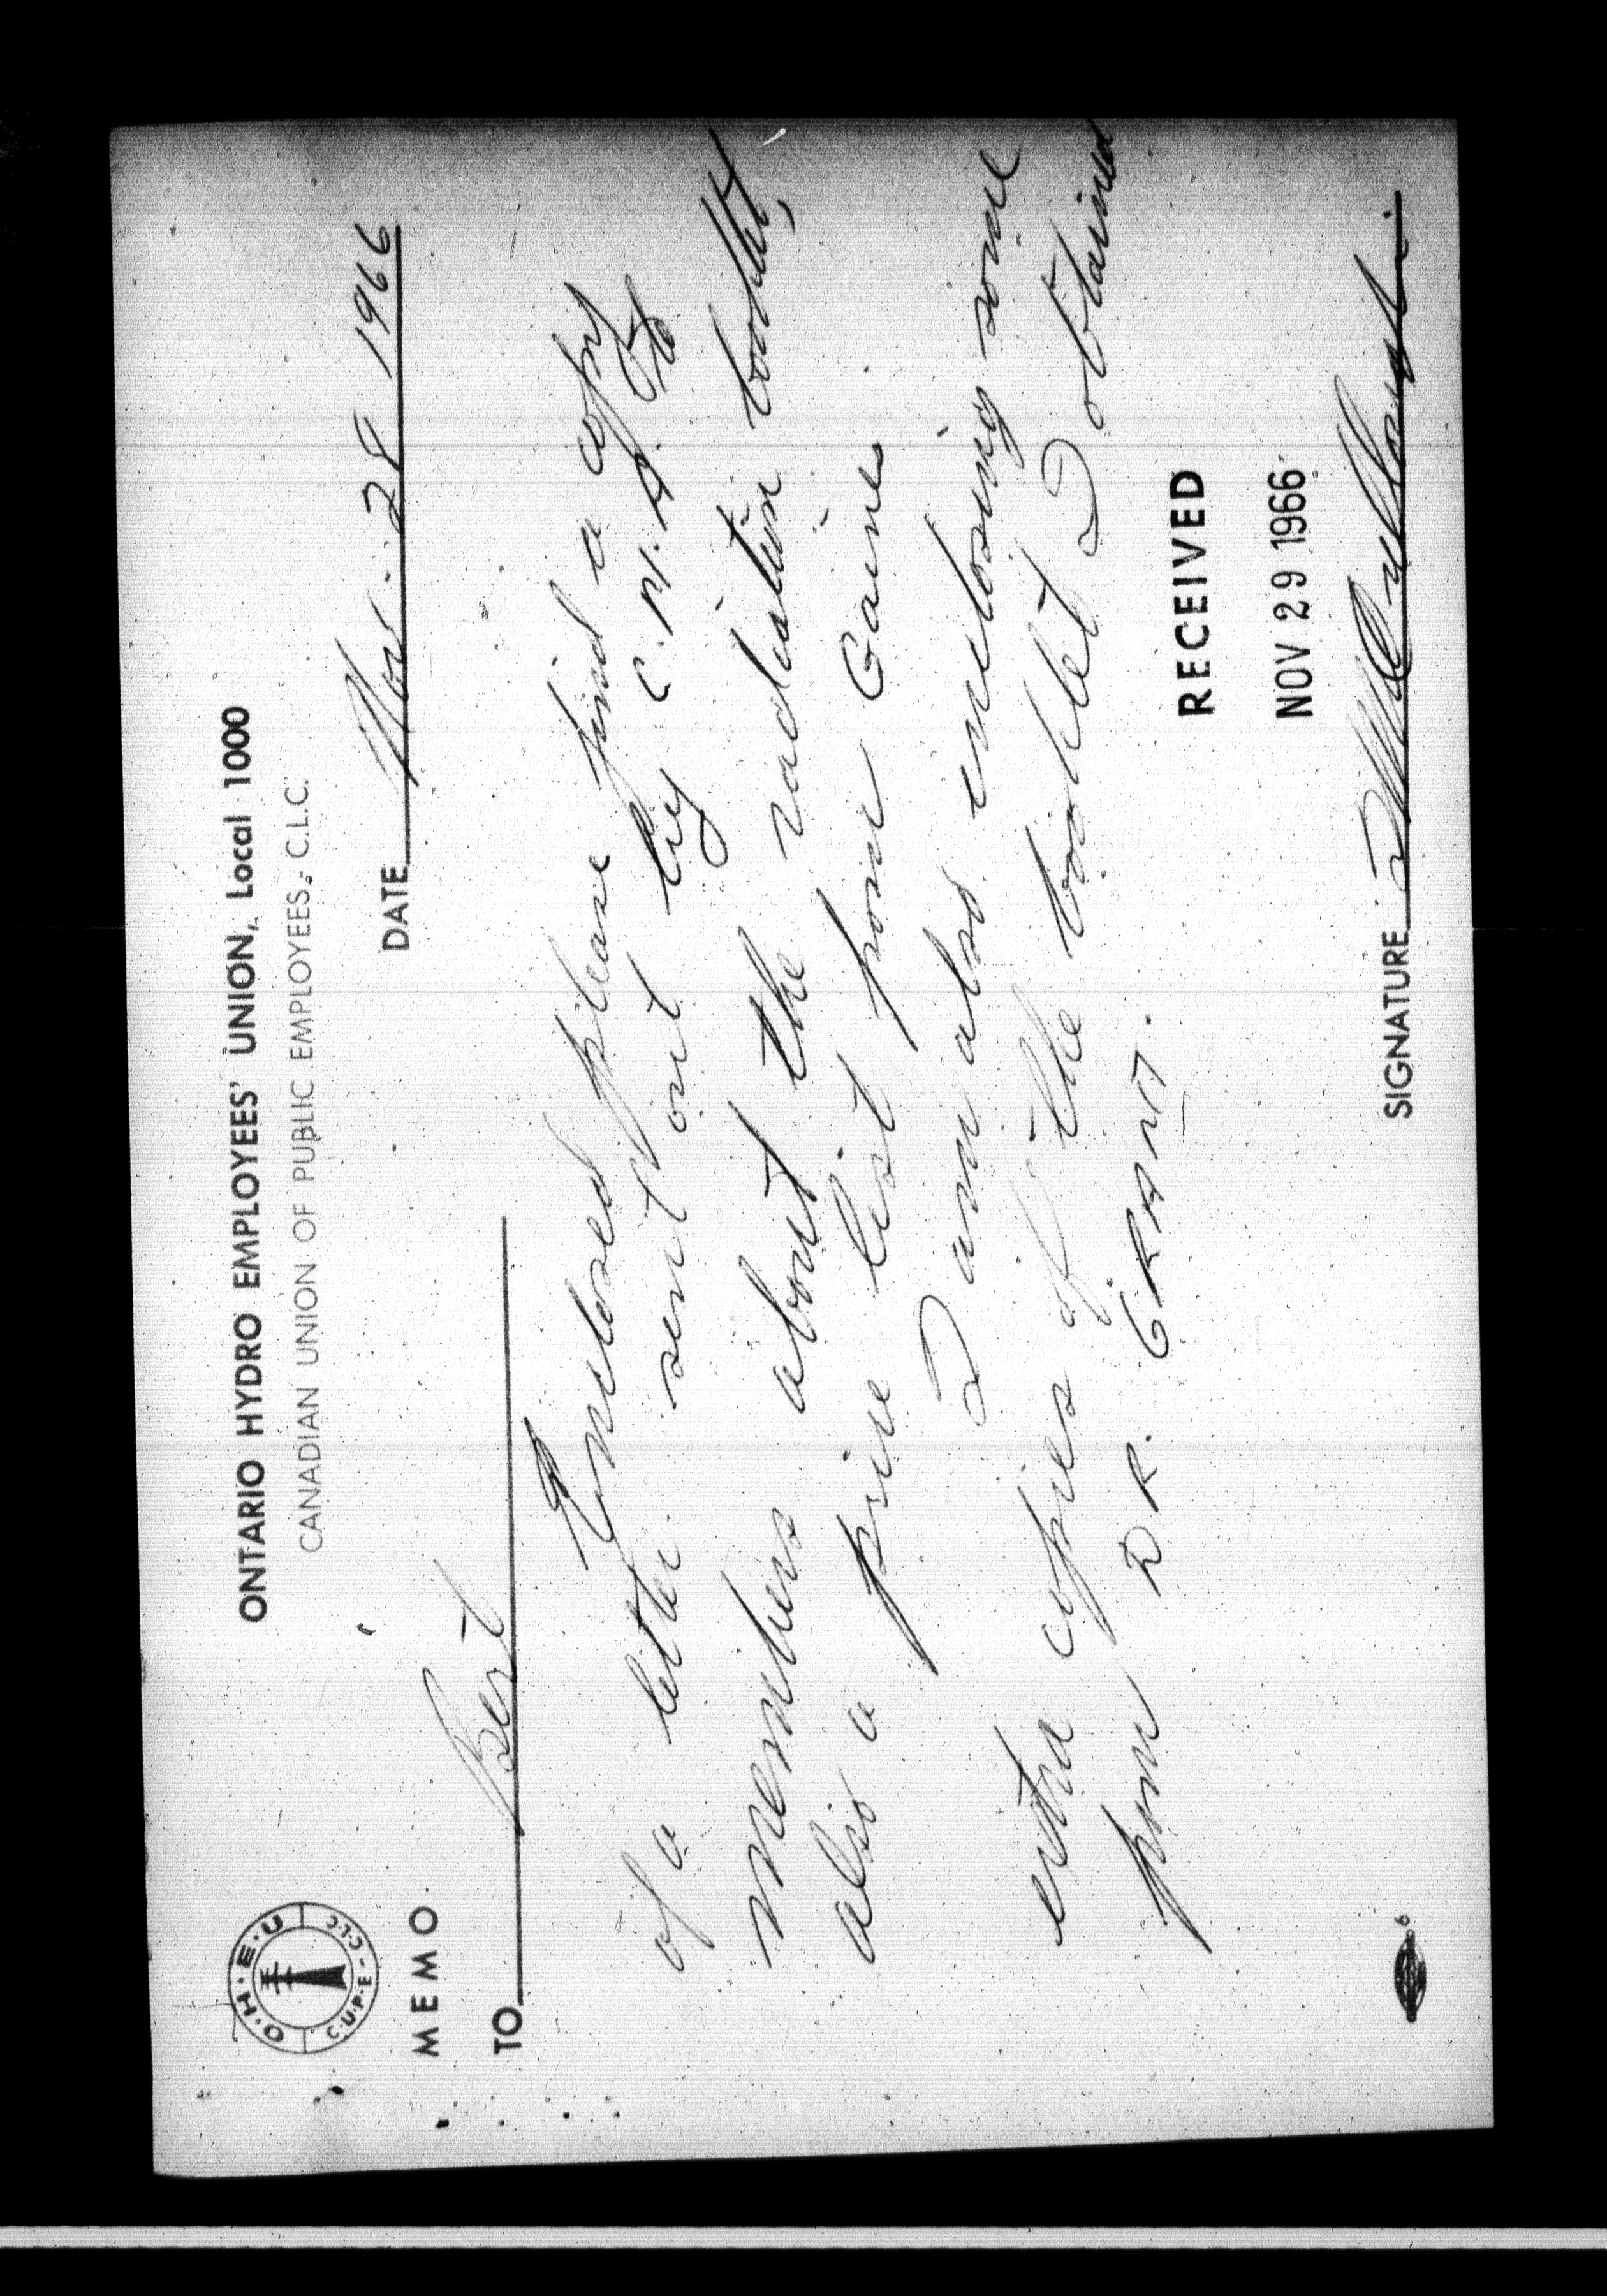 O·H·E·U
C·U·P·E - C·L·C
ONTARIO HYDRO EMPLOYEES' UNION, Local 1000
CANADIAN UNION OF PUBLIC EMPLOYEES, C.L.C.
MEMO
DATE Nov. 28 1966
TO Bert
Enclosed please find a copy
of a letter sent out by C.N.A. to
members about the radiation booklet,
also a price list from Gaines
I am also enclosing some
extra copies of the booklet I obtained
from DR. GRANT.
RECEIVED
NOV 29 1966
SIGNATURE
6